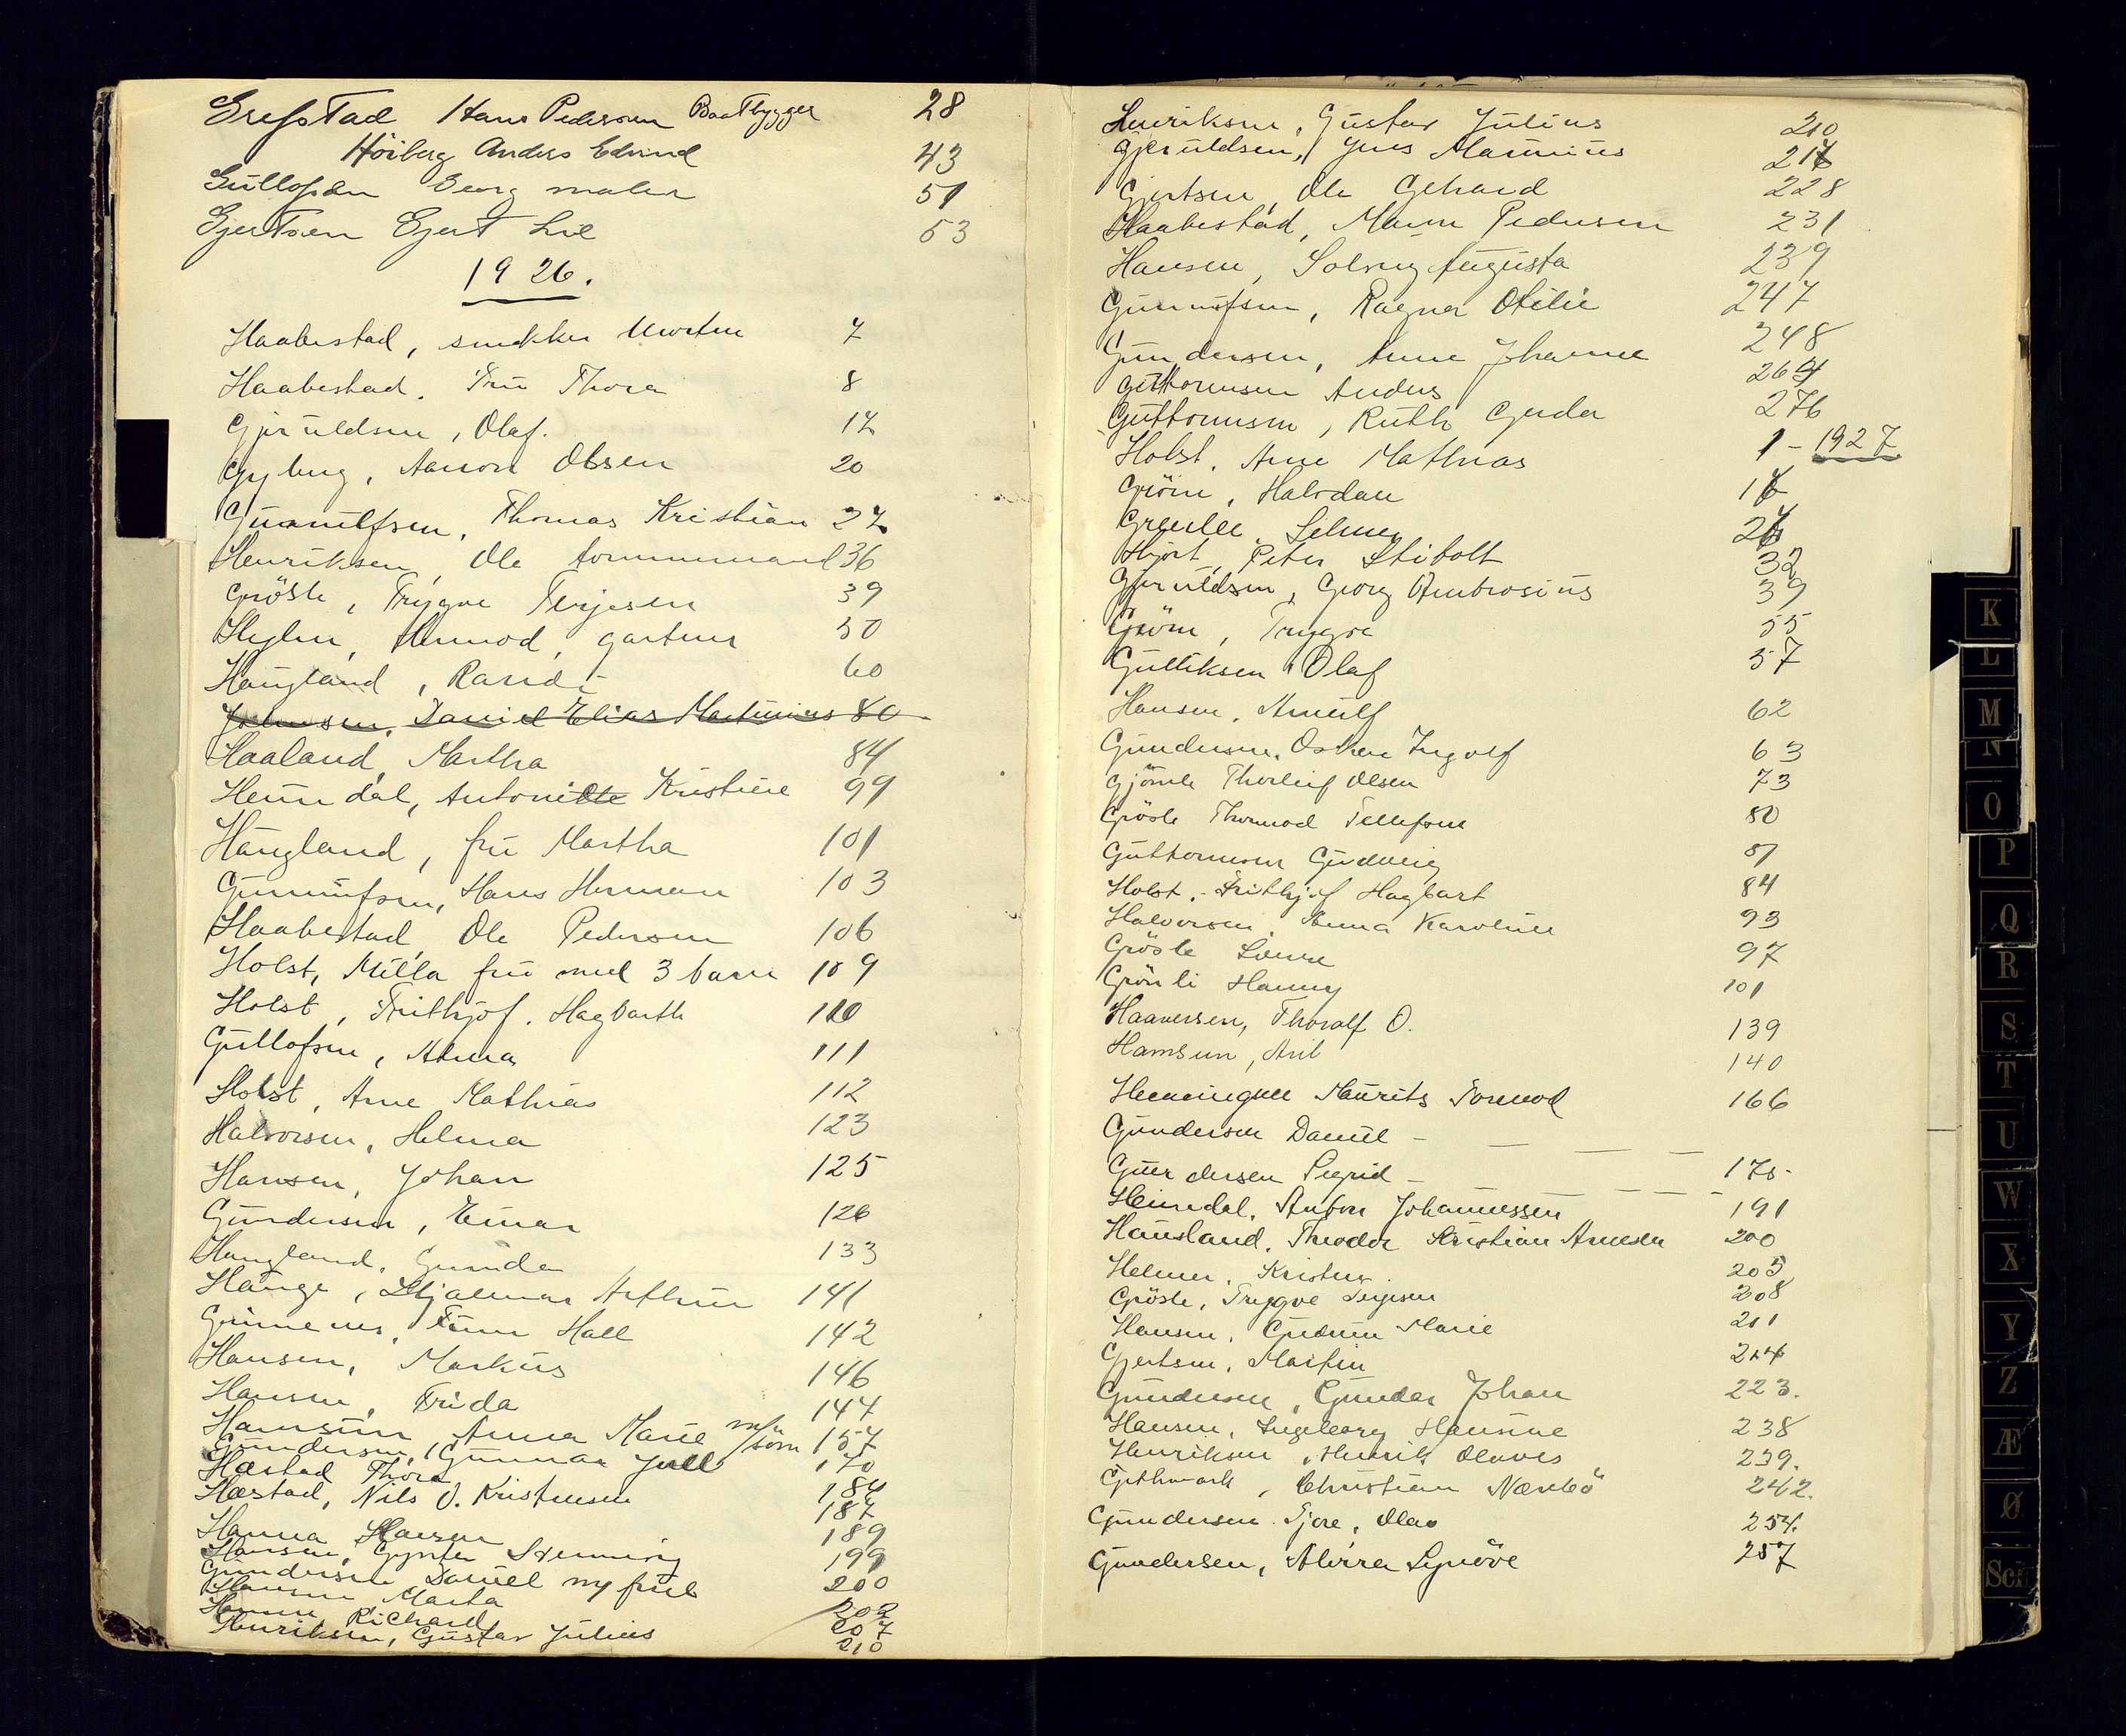 Grefstad Hans Pedersen Baatbygger 28
Höiberg Anders Edvind 43
Gullofsen Georg maler 51
Gjertsen Gjert Lie 53
1926.
Haabestad, snekker Morten 7
Haabestad. Fru Thora 8
Gjeruldsen, Olaf. 17
Gyberg, Aanon Olsen 20
Gunnulfsen, Thomas Kristian 27
Henriksen, Ole tømmermand 36
Gröste, Trygve Terjesen 39
Heglen, Hermod, gartner 50
Haugland, Randi 60
Johnsen, Daniel Elias Martinius 80
Haaland, Martha 84
Heimdal, Antonitte Kristine 99
Haugland, fru Martha 101
Gunnulfsen, Hans Herman 103
Haabestad, Ole Pedersen 106
Holst, Milla fru med 3 barn 109
Holst, Frithjof. Hagbarth 110
Gullofsen, Alma 111
Holst, Arne Mathias 112
Halvorsen, Helma 123
Hansen, Johan 125
Gundersen, Einar 126
Haugland, Gunda 133
Hauge, Hjalmar Arthur 141
Grimenes, Finn Hall 142
Hansen, Markus 146
Hansen, Frida 147
Hamsun, Anna Marie m/sönn 157
Gundersen, Gunnar Juell 170
Hæstad Thora 184
Hæstad, Nils O. Kristensen 187
Hanna Hansen 189
Hansen, Gynter Stenning 199
Gundersen Daniel m/ frue 200
Hansen Marta 202
Hansen, Richard 207
Henriksen, Gustav Julius 210
Henriksen, Gustav Julius 210
Gjeruldsen, Jens Marinius 217
Gjertsen, Ole Gehard 228
Haabestad, Maren Pedersen 231
Hansen, Solveig Augusta 239
Gunnulfsen, Ragna Otilie 247
Gundersen, Anne Johanne 248
Guttormsen Anders 264
Guttormsen, Ruth Gerda 276
Holst, Arne Mathias 1 - 1927
Gröm, Halvdan 17
Grenlee Selmer 27
Hjort, Peter Stibolt 32
Gjeruldsen, Georg Ambrosius 39
Gröm, Trygve 55
Gulliksen, Olaf 57
Hansen, Arnulf 62
Gundersen, Oskar Ingolf 63
Gjömle Thorleif Olsen 73
Gröste Thormod Tellefsen 80
Guttormsen Gudveig 81
Holst, Frithjof Hagbart 84
Halvorsen, Anna Karoline 93
Gröste Lovise 97
Grönli Hanny 101
Haaversen, Thoralf O. 139
Hamsun, Aril 140
Henningsen Maurits Formod 166
Gundersen Daniel
Gundersen Sigrid 175
Heimdal, Anton Johannessen 191
Hausland, Theodor Kristian Arnesen 200
Helmer, Kristen 205
Gröste, Trygve Terjesen 208
Hansen, Gudrun Marie 211
Gjertsen, Martin 214
Gundersen, Gunder Johan 223.
Hansen, Ingeborg Hansine 238
Henriksen, Henrik Olaves 239.
Githmark, Christian Næsbö 242.
Gundersen Tjore, Olav 254.
Gundersen, Alvira Synöve 257
K
L
M
N
O
P
Q
R
S
T
U
W
X
Y
Z
Æ
Ø
Sch